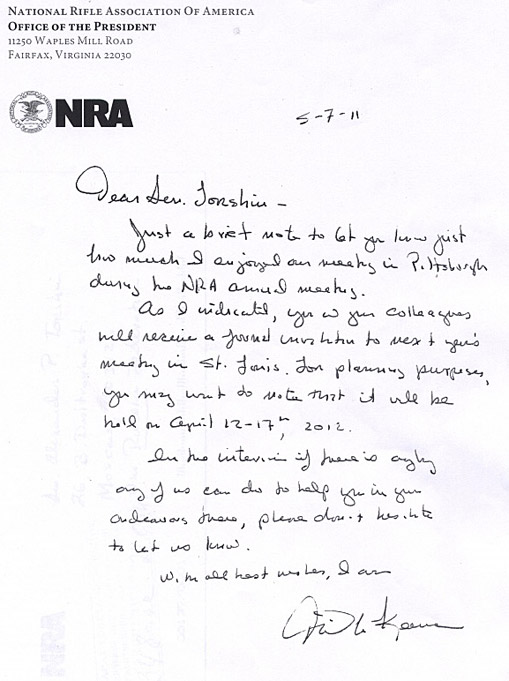 NATIONAL RIFLE ASSOCIATION OF AMERICA
OFFICE OF THE PRESIDENT
11250 WAPLES MILL ROAD
FAIRFAX, VIRGINIA 22030
NRA
5-7-11
Dear Sen. Torshin -
Just a brief note to let you know just
how much I enjoyed our meeting in Pittsburgh
during the NRA annual meeting.
As I indicated, you & your colleagues
will receive a formal invitation to next year's
meeting in St. Louis. For planning purposes,
you may want to note that it will be
held on April 12-17th, 2012.
In the interim if there is anything
any of us can do to help you in your
endeavors there, please don't hesitate
to let us know.
With all best wishes, I am
David Keene